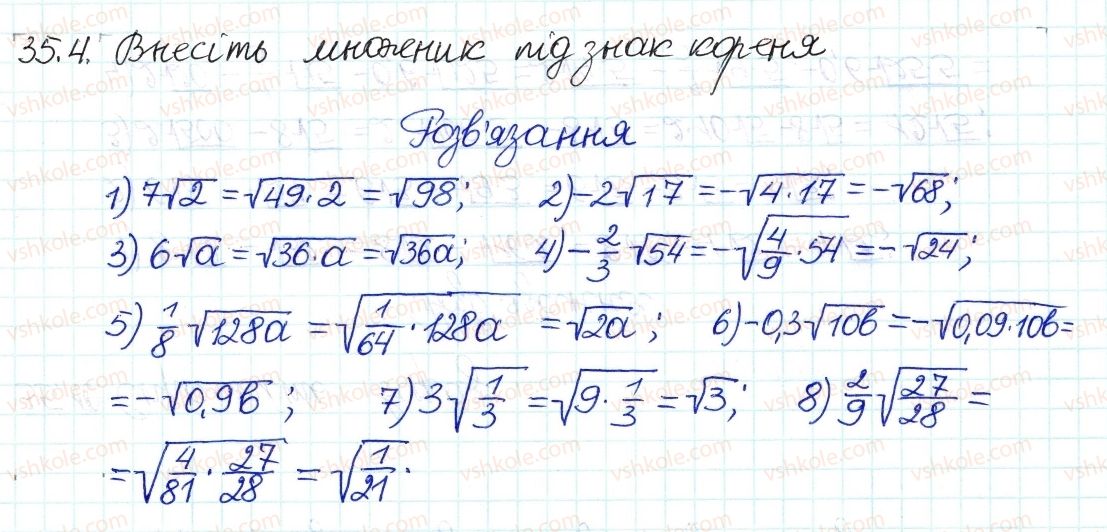 35.4. Внесіть множеник під знак кореня
Розв'язання
1) 7√2 = √49·2 = √98; 2) -2√17 = -√4·17 = -√68;
3) 6√a = √36·a = √36a; 4) -2/3 √54 = -√4/9·54 = -√24;
5) 1/8 √128a = √1/64·128a = √2a; 6) -0,3√10b = -√0,09·10b =
= -√0,9b; 7) 3√1/3 = √9·1/3 = √3; 8) 2/9 √27/28 =
= √4/81·27/28 = √1/21.